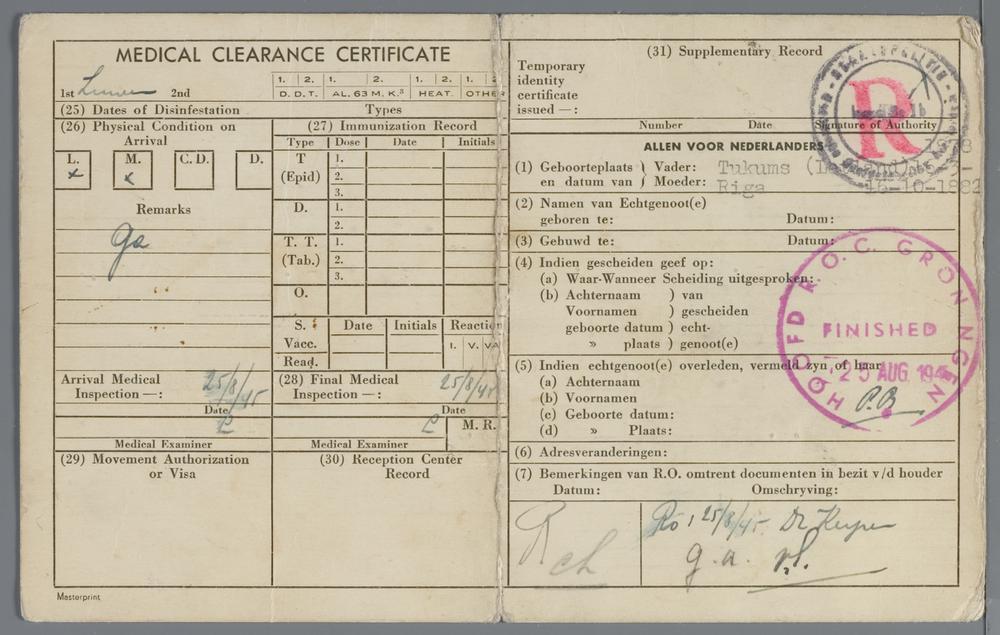 MEDICAL CLEARANCE CERTIFICATE
1st 2nd
1. 2. 1. 2. 1. 2. 1. 2
D. D. T. AL. 63 M. K.³ HEAT. OTHE
(25) Dates of Disinfestation Types
(26) Physical Condition on
Arrival
L. M. C. D. D.
x x
Remarks
ga
(27) Immunization Record
Type Dose Date Initials
T 1.
(Epid) 2.
3.
D. 1.
2.
T. T. 1.
(Tab.) 2.
3.
O.
S. Date Initials Reaction
Vacc. I. V. VA
Read.
Arrival Medical
Inspection —: 25/8/45
Date
Medical Examiner
(28) Final Medical
Inspection —: 25/8/45
Date
M. R.
Medical Examiner
(29) Movement Authorization
or Visa
(30) Reception Center
Record
Masterprint
(31) Supplementary Record
Temporary
identity
certificate
issued —:
Number Date Signature of Authority
R
ALLEN VOOR NEDERLANDERS
(1) Geboorteplaats } Vader: Tukums
en datum van } Moeder: Riga 16-10-1882
(2) Namen van Echtgenoot(e)
geboren te: Datum:
(3) Gehuwd te: Datum:
(4) Indien gescheiden geef op:
(a) Waar-Wanneer Scheiding uitgesproken:
(b) Achternaam ) van
Voornamen ) gescheiden
geboorte datum ) echt-
» plaats ) genoot(e)
(5) Indien echtgenoot(e) overleden, vermeld zyn of haar
(a) Achternaam
(b) Voornamen
(c) Geboorte datum:
(d) » Plaats:
HOOFD R.O.C. GRONINGEN
FINISHED
25 AUG 194
P.B
(6) Adresveranderingen:
(7) Bemerkingen van R.O. omtrent documenten in bezit v/d houder
Datum: Omschryving:
R
ch
Ro, 25/8/45. Dr Keyser
g.a.